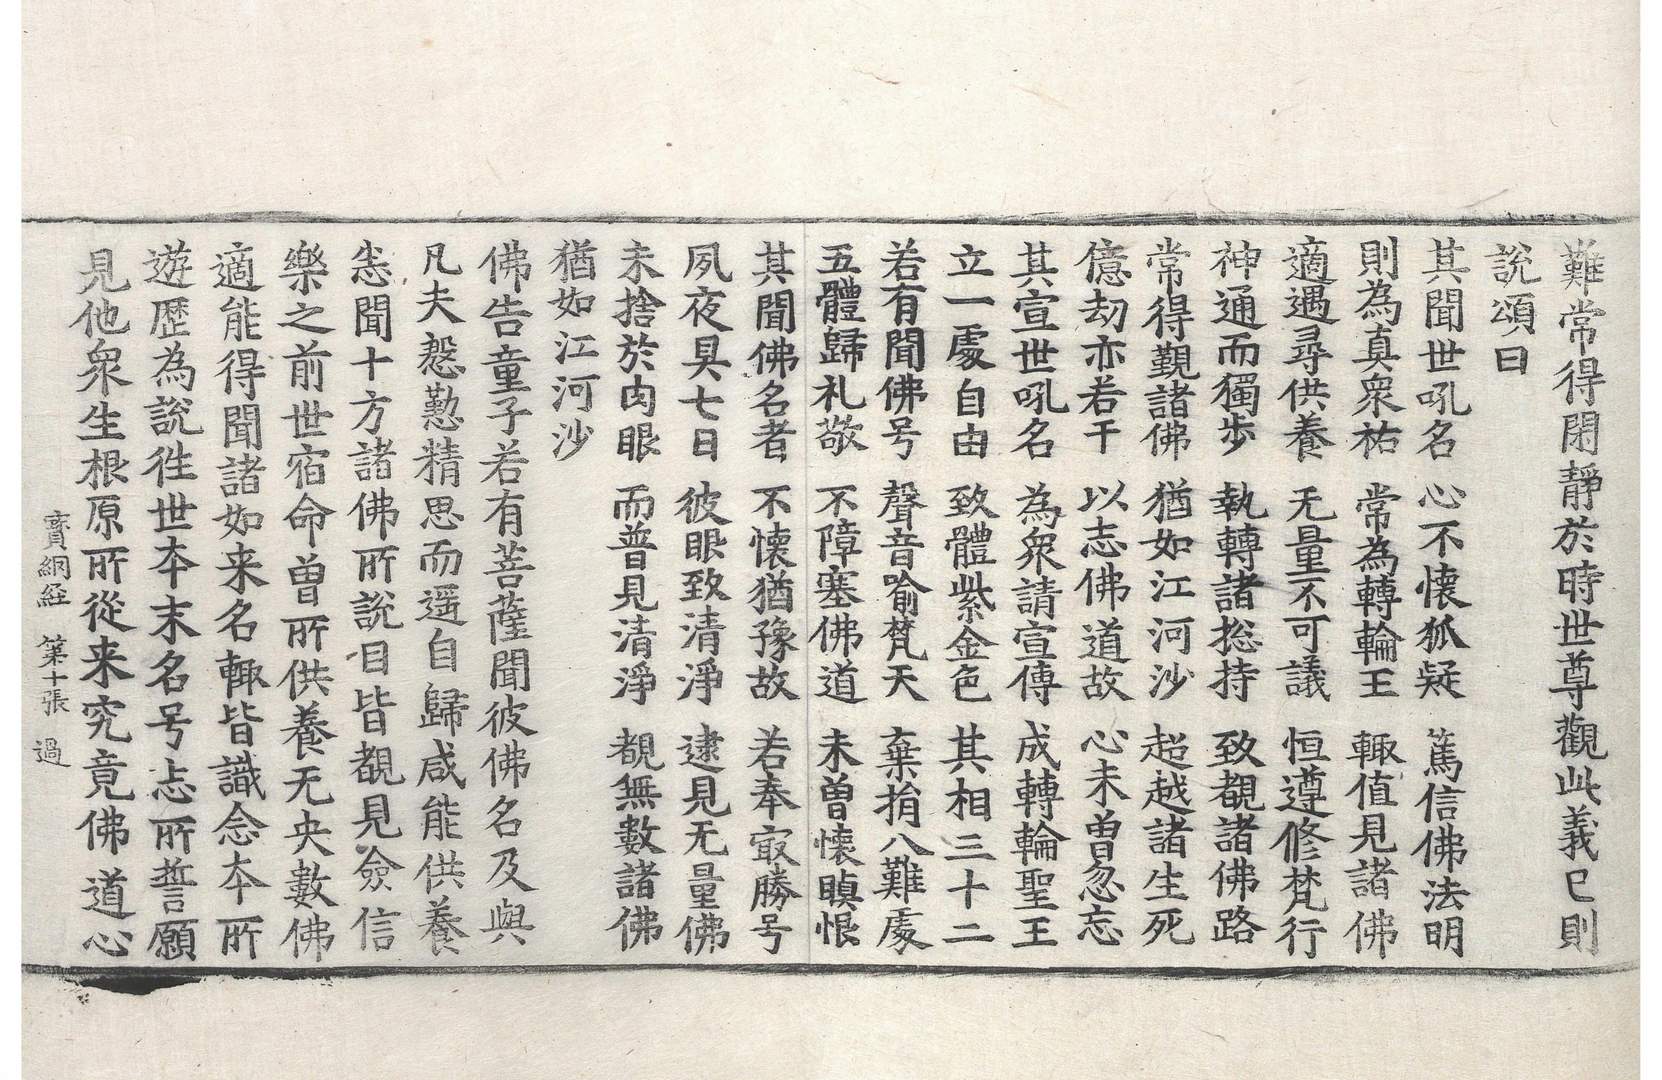 難常得閑靜於時世尊觀此義已則
說頌曰
其聞世吼名　心不懷狐疑　篤信佛法明
則為真衆祐　常為轉輪王　輙值見諸佛
適遇尋供養　无量不可議　恒遵修梵行
神通而獨步　執轉諸捴持　致覩諸佛路
常得覲諸佛　猶如江河沙　超越諸生死
億劫亦若干　以志佛道故　心未曽忽忘
其宣世吼名　為衆請宣傳　成轉輪聖王
立一處自由　致體紫金色　其相三十二
若有聞佛号　聲音喻梵天　棄捐八難處
五體歸礼敬　不障塞佛道　未曽懷瞋恨
其聞佛名者　不懷猶豫故　若奉㝡勝号
夙夜具七日　彼眼致清淨　逮見无量佛
未捨於肉眼　而普見清淨　覩無數諸佛
猶如江河沙
佛告童子若有菩薩聞彼佛名及與
凡夫慇懃精思而遥自歸咸能供養
恙聞十方諸佛所說目皆覩見僉信
樂之前世宿命曽所供養无央數佛
適能得聞諸如来名輙皆識念本所
遊歷為說徃世本末名号志所誓願
見他衆生根原所從来究竟佛道心
寶網経　第十張　過